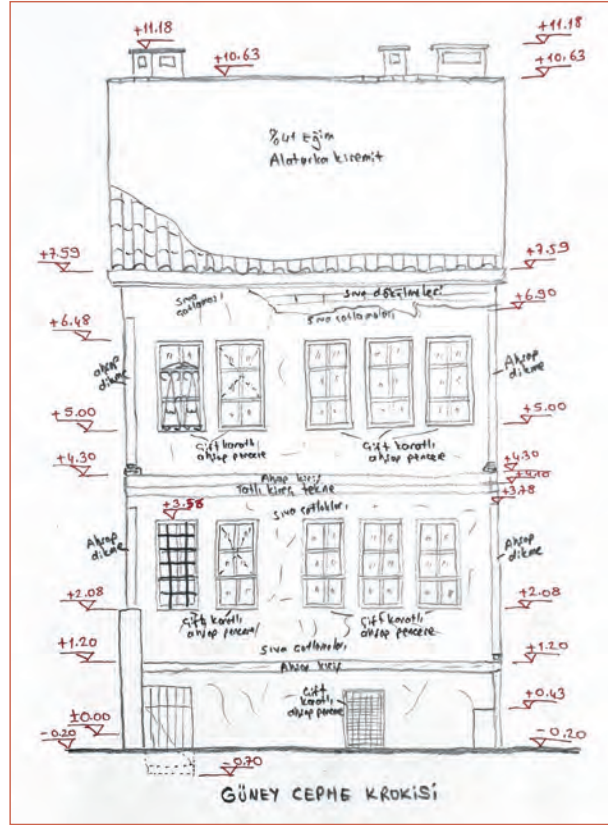 +11.18
+11.18
+10.63
+10.63
%41 Eğim
Alaturka kiremit
+7.59
+7.59
sıva
çatlaması
sıva dökülmeleri
+6.90
sıva çatlamaları
+6.48
ahşap
dikme
Ahşap
dikme
+5.00
+5.00
Çift kanatlı
ahşap pencere
Çift kanatlı
ahşap pencere
+4.30
+4.30
Ahşap kiriş
+4.10
Tatlı kireç tekne
+3.78
+3.58
sıva çatlakları
Ahşap
dikme
Ahşap
dikme
+2.08
+2.08
Çift kanatlı
ahşap pencere
Çift kanatlı
ahşap pencere
sıva çatlamaları
+1.20
+1.20
Ahşap kiriş
Çift
kanatlı
ahşap pencere
+0.43
±0.00
-0.20
-0.20
-0.70
GÜNEY CEPHE KROKİSİ